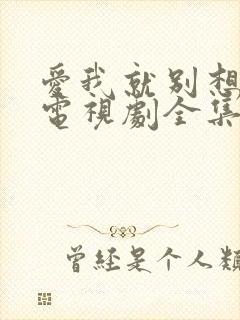 愛我就別想
電視劇全集
曾經是个人類